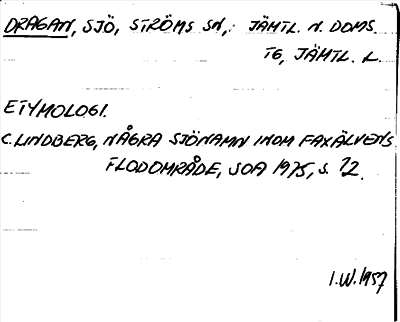 DRAGAN, SJÖ, STRÖMS SN, JÄMTL. N. DOMS.
TG, JÄMTL. L.
ETYMOLOGI.
C. LINDBERG, NÅGRA SJÖNAMN INOM FAXÄLVENS
FLODOMRÅDE, SOA 1975, S. 12.
I.W. 1957